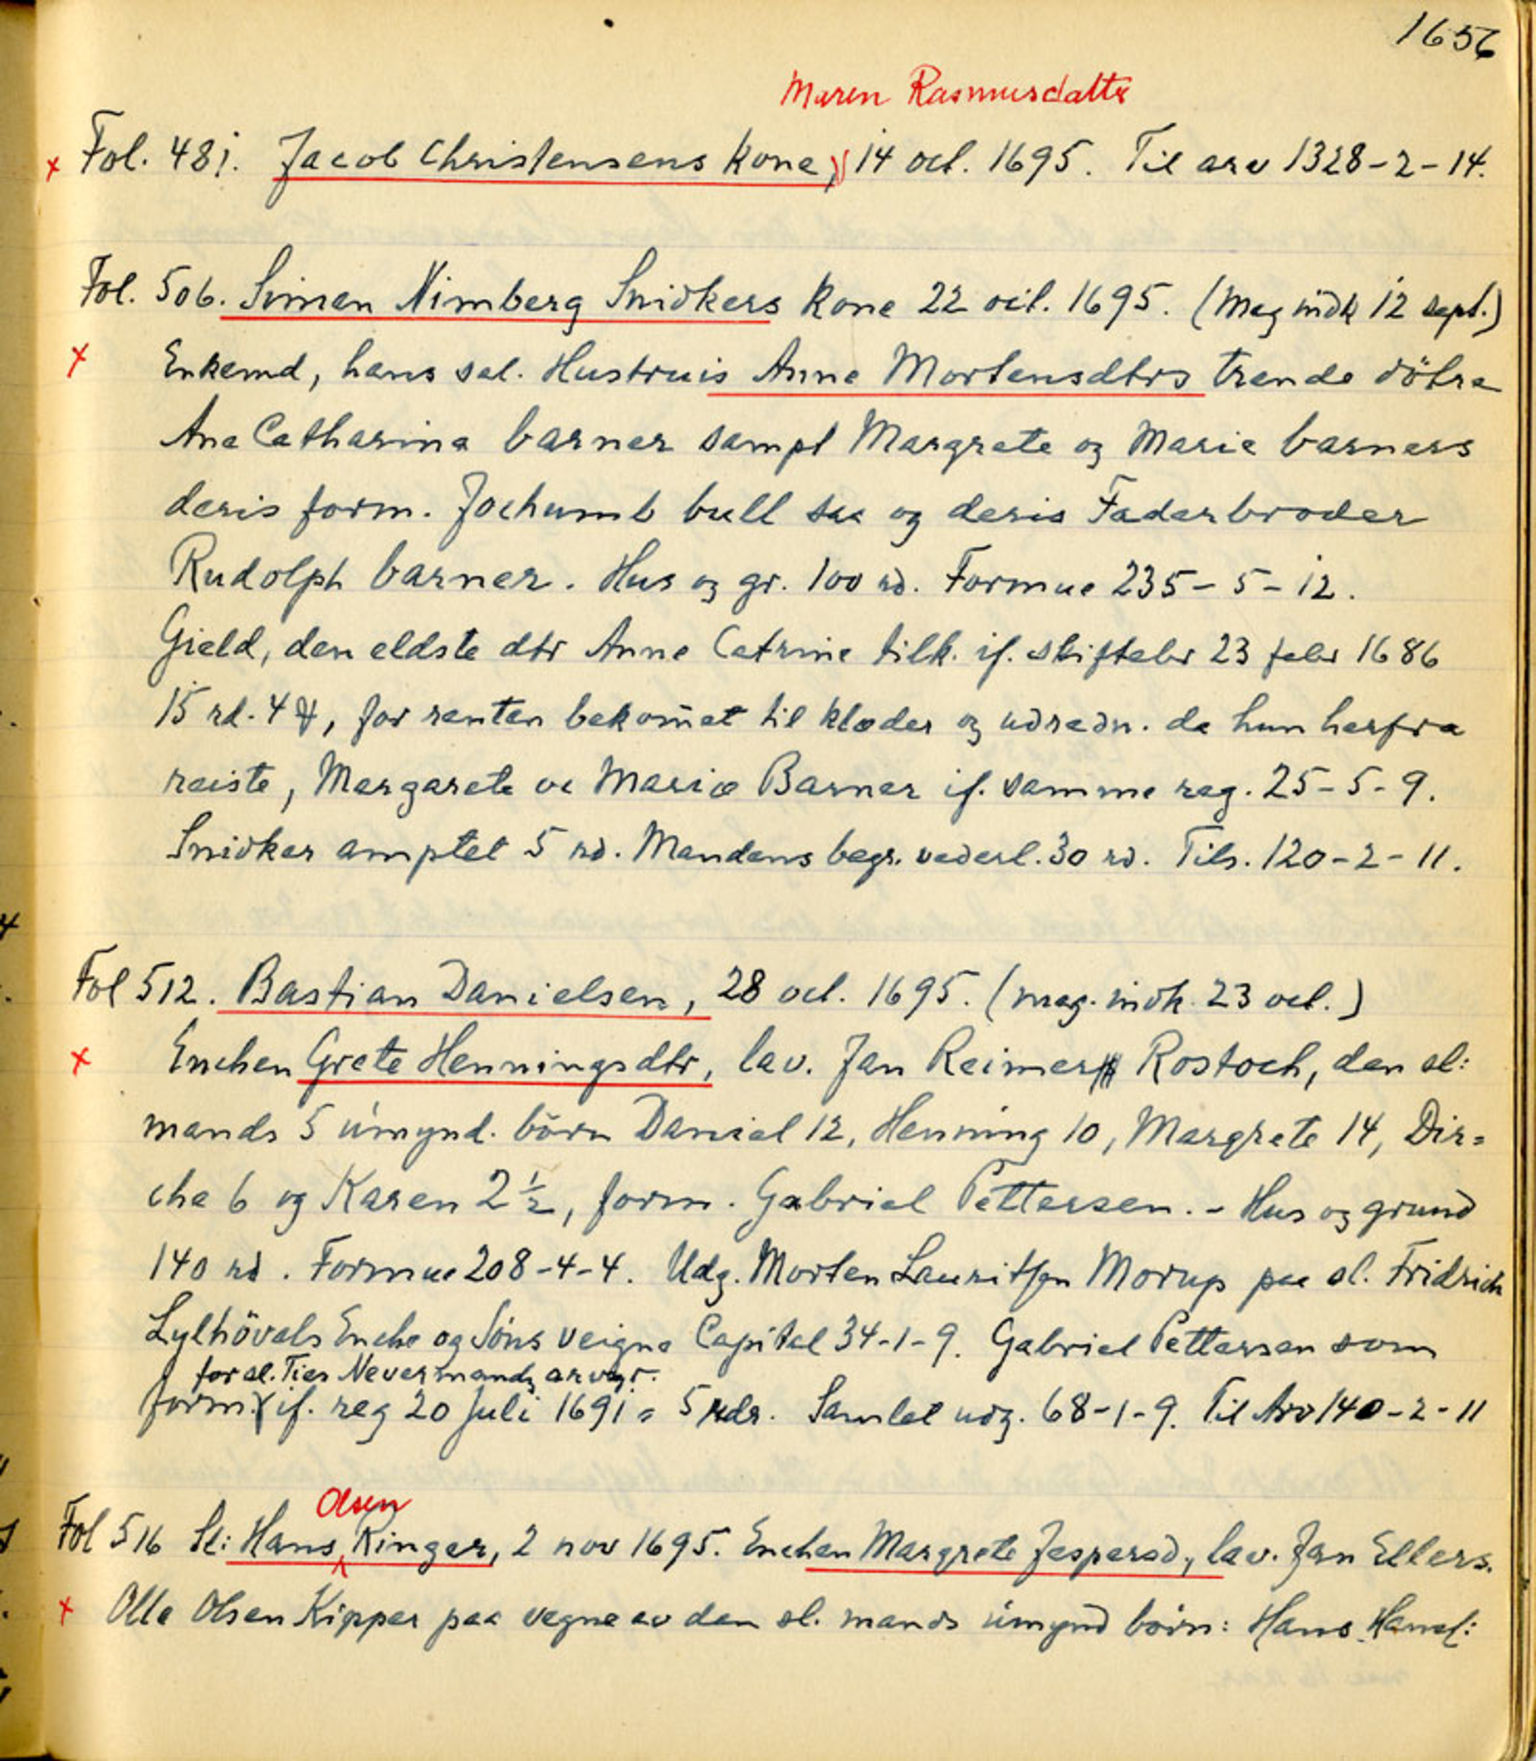 1656
Maren Rasmusdatter
x Fol. 481. Jacob Christensens kone, 14 oct. 1695. Til arv 1328-2-14.
Fol. 506. Siman Nimberg Snidkers kone 22 oct. 1695. (Mag indk 12 sept.)
x Enkemd, hans sal. Hustruis Anne Mortensdtrs trende dötre
Ane Catharina barner sampt Margrete og Marie barners
deris form. Jochumb bull saa og deris Faderbroder
Rudolph barner. Hus og gr. 100 rd. Formue 235-5-12.
Gield, den eldste dtr Anne Catrine tilk. if. skiftebr 23 febr 1686
15 rd. 4 ꟗ, for renten bekom̄et til klæder og udredn. da hun herfra
reiste, Margarete oc Marie Barner if. samme reg. 25-5-9.
Snidker amptet 5 rd. Mandens begr. vederl. 30 rd. Tils. 120-2-11.
Fol 512. Bastian Danielsen, 28 oct. 1695. (mag. indk. 23 oct.)
x Enchen Grete Henningsdtr, lav. Jan Reimer Rostoch, den sl:
mands 5 umynd. börn Daniel 12, Henning 10, Margrete 14, Dir=
che 6 og Karen 2½, form. Gabriel Pettersen. - Hus og grund
140 rd. Formue 208-4-4. Udg. Morten Lauritsen Morup paa sl. Fridrich
Lylhövels Enche og Söns veigne Capital 34-1-9. Gabriel Pettersen som
for sl. Ties Nevermands arvgr.
form. if. reg 20 Juli 1691 = 5 rdr. Samlet udg. 68-1-9. Til Arv 140-2-11
Olsen
Fol 516 Sl: Hans Ringer, 2 nov 1695. Enchen Margrete Jespersd, lav. Jan Ellers.
x Olle Olsen Kipper paa vegne av den sl. mands umynd börn: Hans Hansf: